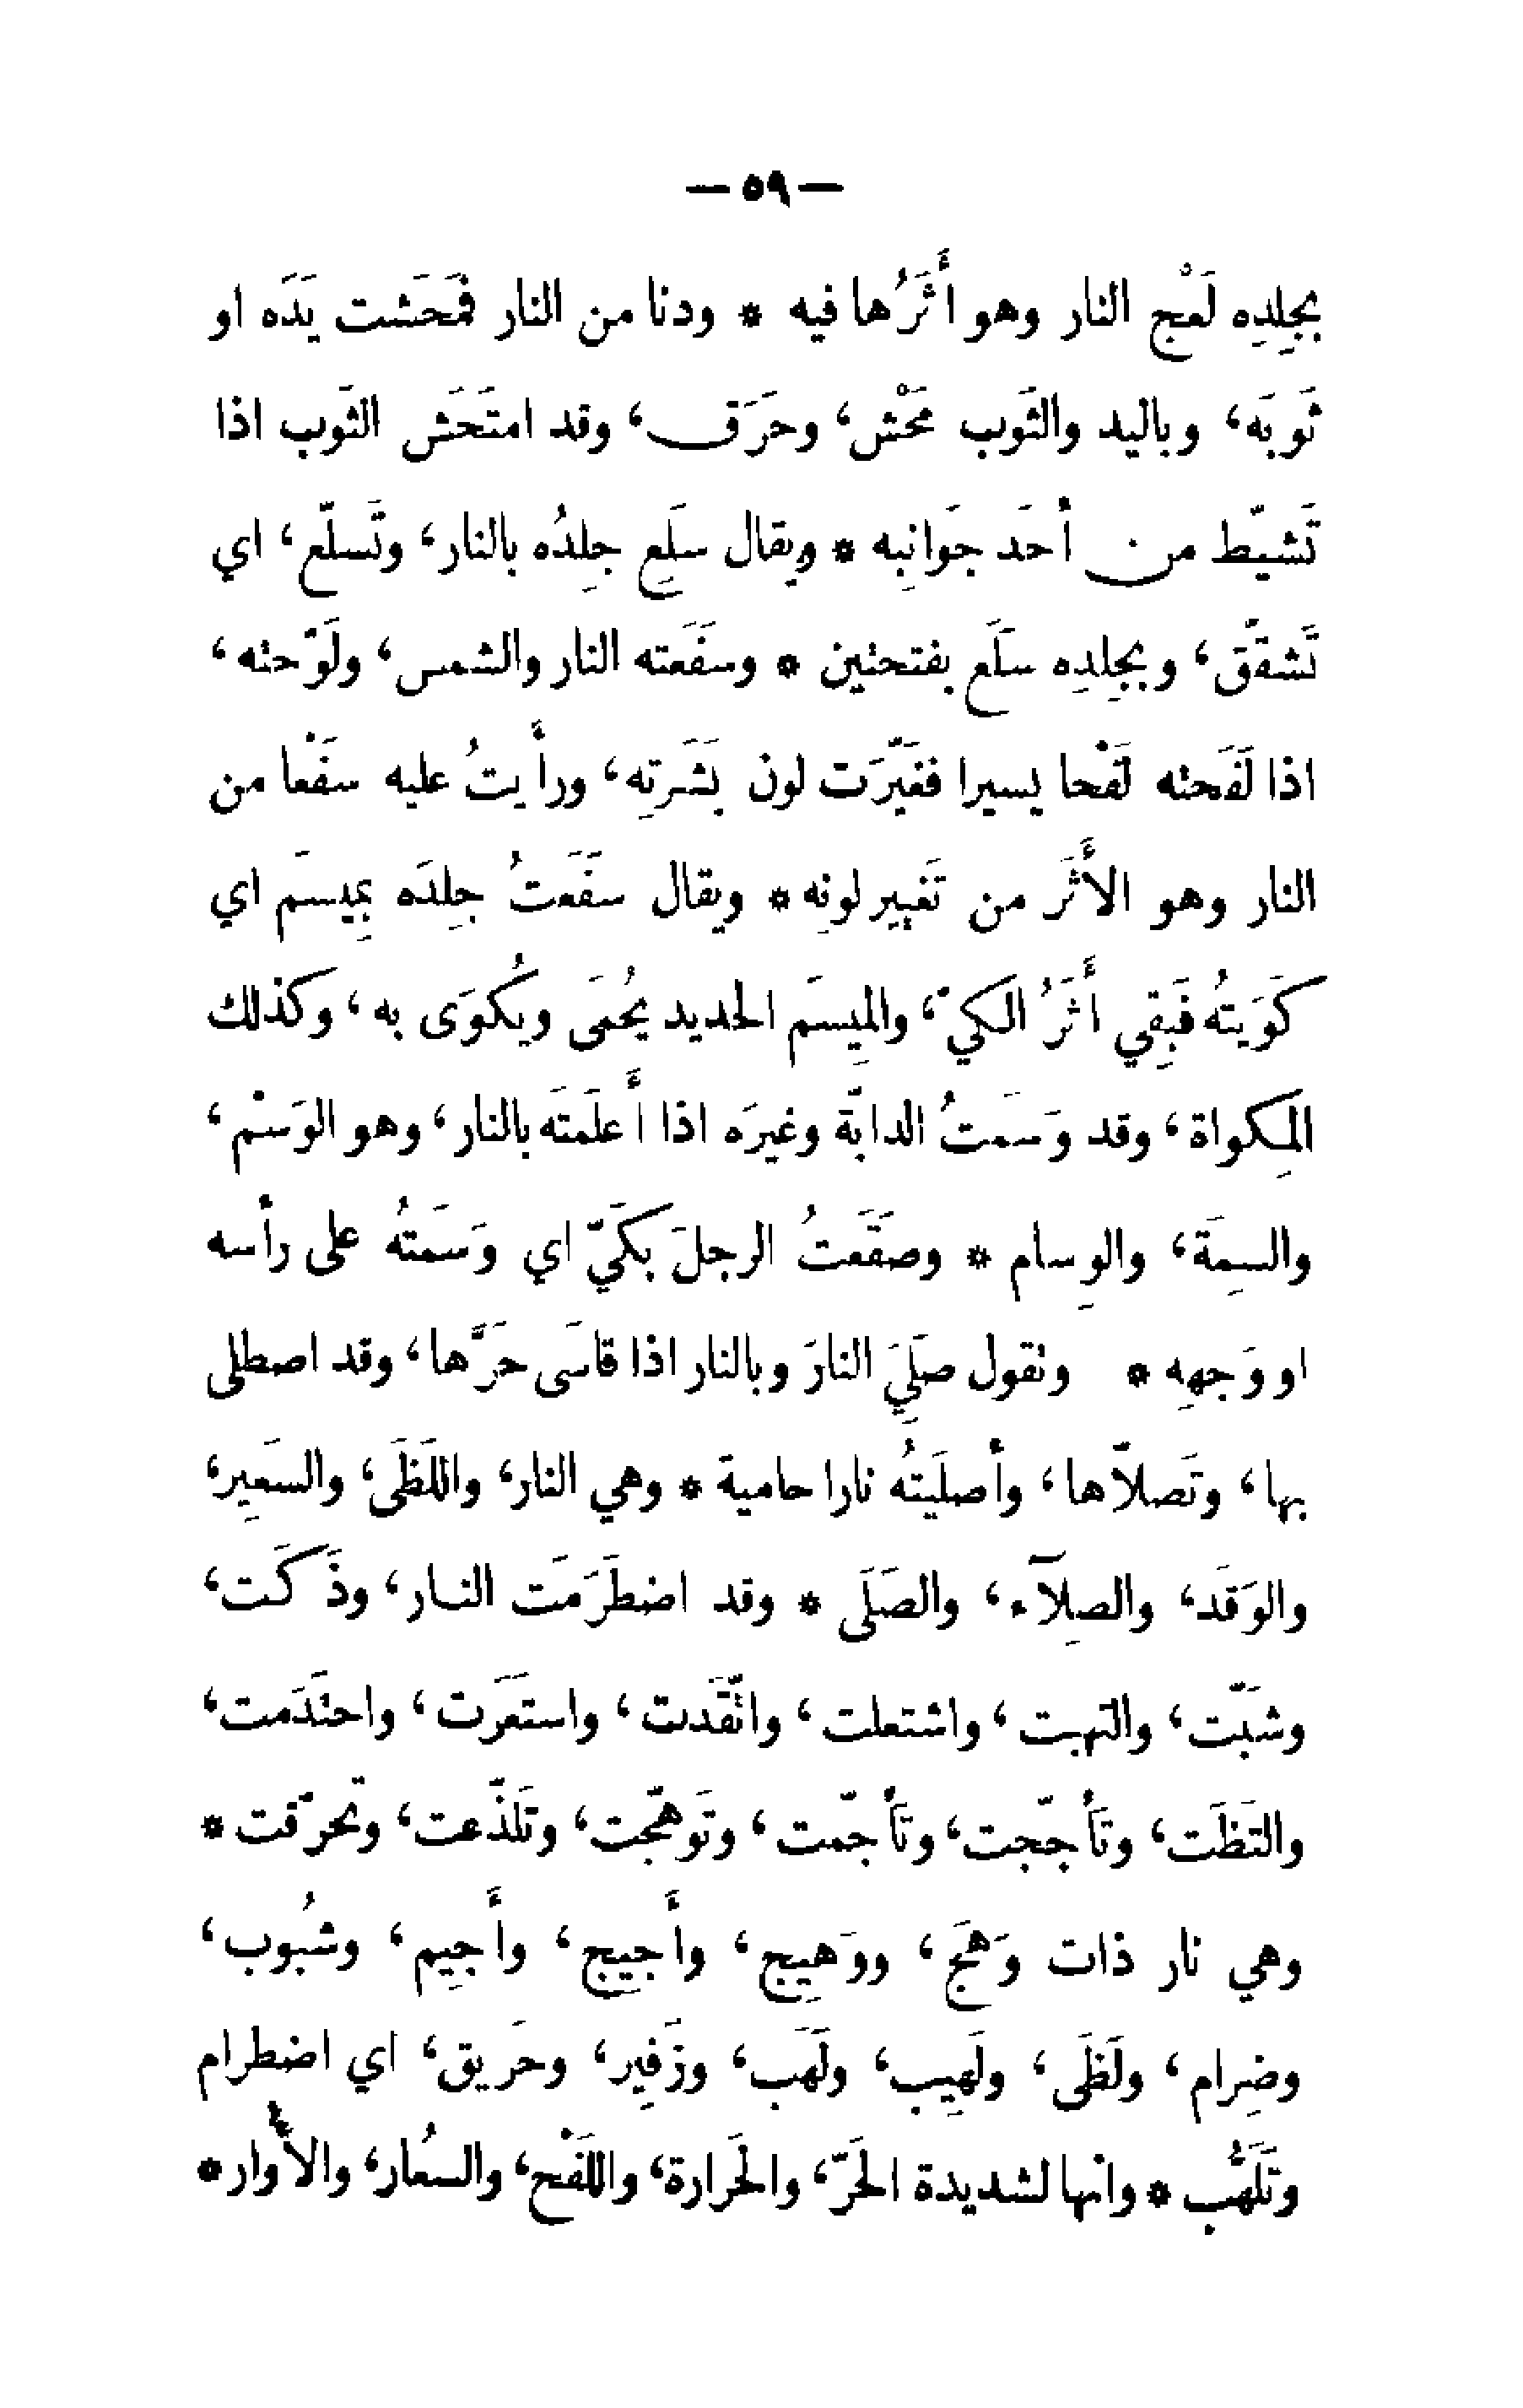 — ٥٩ —
بجِلِدِه لَعْج النار وهو أَثَرُها فيه * ودنا من النار فمَحَشت يَدَه او
ثَوبَه، وباليد والثَوب مَحْش، وحَرَق، وقد امتَحَش الثَوب اذا
تَشيّط من أحَد جَوانِبه * ويقال سَلَعِ جِلدُه بالنار، وتَسلّع، اي
تَشقّق، وبجِلدِه سَلَع بفتحتين * وسَفَعته النار والشمس، ولَوّحته،
اذا لَفَحته لَفْحا يسيرا فغَيّرَت لون بَشَرتِه، ورأَيتُ عليه سَفْعا من
النار وهو الأَثَر من تَغيير لونِه * ويقال سَفَعتُ جِلدَه بمِيسَم اي
كَوَيتُه فَبقِي أَثَرُ الكيّ، والمِيسَم الحديد يُحمَى ويُكوَى به، وكذلك
المِكواة، وقد وَسَمتُ الدابّة وغيرَه اذا أَعلَمتَه بالنار، وهو الوَسْم،
والسِمَة، والوِسام * وصَقَعتُ الرجلَ بكَيّ اي وَسَمتُه على رأسه
او وَجهِه * وتقول صَلِيَ النارَ وبالنار اذا قاسَى حَرَّها، وقد اصطلى
بها، وتَصلاّها، وأصلَيتُه نارا حامية * وهي النار، واللَظَى، والسَعِير،
والوَقَد، والصِلآء، والصَلَى * وقد اضطَرَمَت النار، وذَكَت،
وشَبّت، والتهبت، واشتعلت، واتَّقَدت، واستَعَرَت، واحتَدَمت،
والتَظَت، وتَأجّجت، وتَأجّمت، وتَوهّجت، وتَلذّعت، وتحرّقت *
وهي نار ذات وَهَج، ووَهِيج، وأَجِيج، وأَجِيم، وشُبُوب،
وضِرام، ولَظَى، ولَهِيب، ولَهَب، وزَفِير، وحَريق، اي اضطرام
وتَلَهُّب * وانها لشديدة الحَرّ، والحَرارة، واللَفْح، والسُعار، والأُوار *